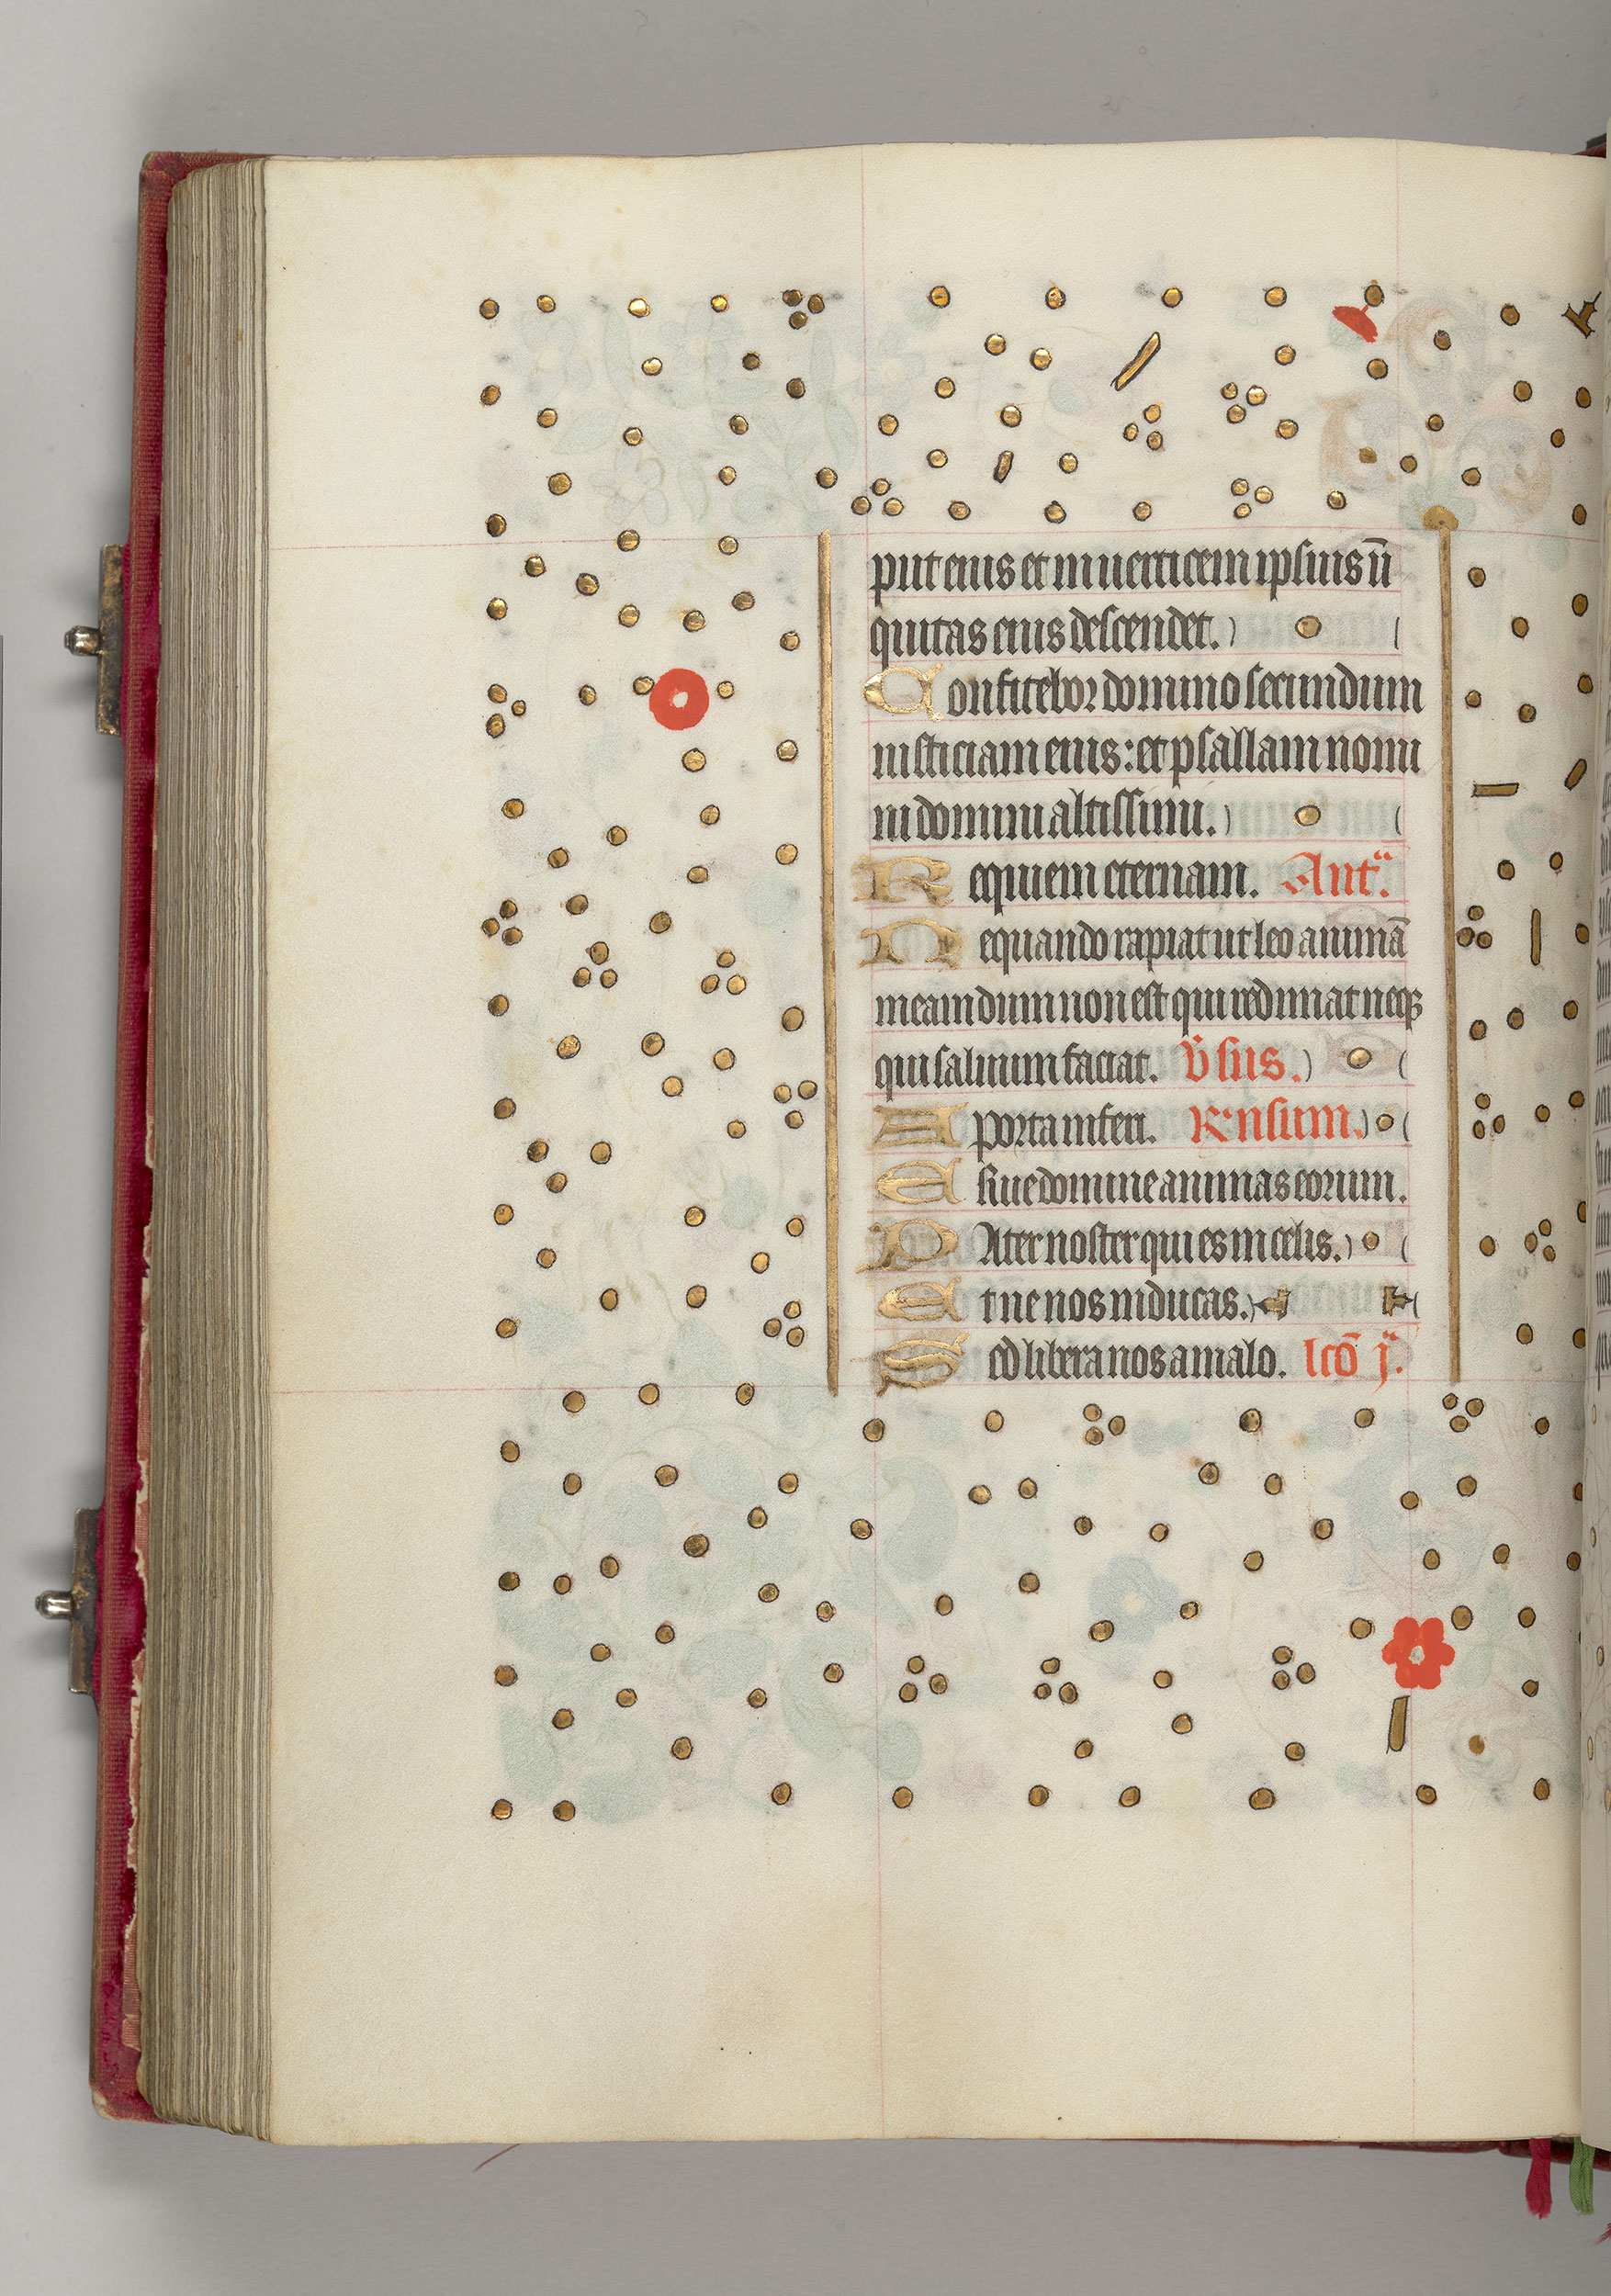 put eius et in uerticem ipsius īi
quitas eius descendet.
Confitebor domino secundum
iusticiam eius: et psallam nomi
ni domini altissimi.
Requiem eternam. Ant̄.
Nequando rapiat ut leo animā
meam dum non est qui redimat neqꝫ
qui saluum faciat. V̄sus.
A porta inferi. Rn̄sum.
Erue domine animas eorum.
PAter noster qui es in celis.
Et ne nos inducas.
Sed libera nos a malo. lcō j.